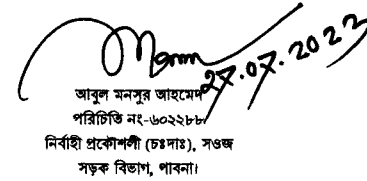 27.07.2022
আবুল মনসুর আহমেদ
পরিচিতি নং-৬০২২৮৮
নির্বাহী প্রকৌশলী (চঃদাঃ), সওজ
সড়ক বিভাগ, পাবনা।